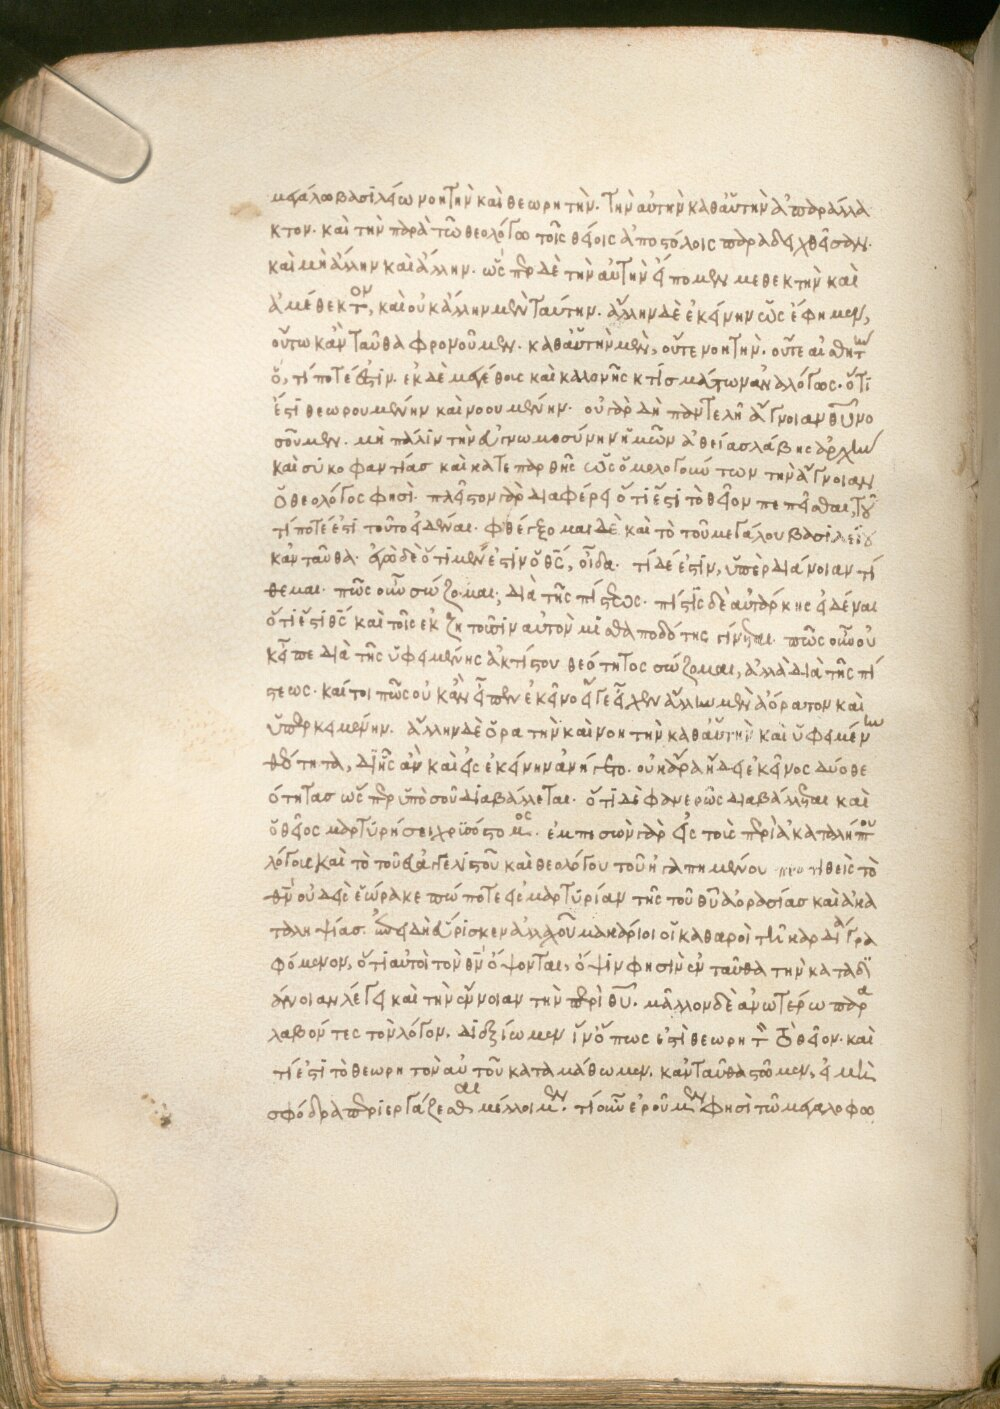 μεγάλω βασιλείω νοητὴν καὶ θεωρητὴν. τὴν αὐτὴν καθ' αὑτὴν ἀπαράλλα
κτον. καὶ τὴν παρὰ τῶ θεολόγω τοῖς θείοις ἀποστόλοις παραδειχθεῖσαν.
καὶ μὴ ἄλλην καὶ ἄλλην. ὥσπερ δὲ τὴν αὐτὴν εἴπομεν μεθεκτὴν καὶ
ἀμέθεκτον, καὶ οὐκ ἄλλην μὲν ταύτην. ἄλλην δὲ ἐκείνην ὡς ἔφημεν,
οὕτω κἀνταῦθα φρονοῦμεν. καθ' αὑτὴν μὲν, οὔτε νοητὴν. οὔτε αἰσθητὴν
ὅ, τί ποτέ ἐστιν. ἐκ δὲ μεγέθους καὶ καλονῆς κτισμάτων ἀναλόγως. ὅτι
ἐστὶ θεωρουμένην καὶ νοουμένην. οὐ γὰρ δὴ παντελῆ ἄγνοιαν θεοῦ νο
σοῦμεν. μὴ πάλιν τὴν εὐγνωμοσύνην ἡμῶν ἀθεΐας λάβης ἀρχὴν
καὶ συκοφαντίας καὶ κατεπαρθῆς ὡς ὁμολογούντων τὴν ἄγνοιαν
ὁ θεολόγος φησὶ. πλεῖστον γὰρ διαφέρει ὅτι ἐστὶ τὸ θεῖον πεπεῖσθαι, τοῦ
τί ποτέ ἐστι τοῦτο εἰδέναι. φθέγξομαι δὲ καὶ τὸ τοῦ μεγάλου βασιλείου
κἀνταῦθα. ἐγὼ δὲ ὅτι μέν ἐστιν ὁ θς, οἶδα. τί δέ ἐστιν, ὑπὲρ διάνοιαν τί
θεμαι. πῶς οὖν σώζομαι; διὰ τῆς πίστεως. πίστις δὲ αὐτάρκης εἰδέναι
ὅτι ἐστὶ θς καὶ τοῖς ἐκζητοῦσιν αὐτὸν μισθαποδότης γίνεται. πῶς οὖν οὐκ
εἶπε διὰ τῆς ὑφειμένης ἀκτίστου θεότητος σώζομαι, ἀλλὰ διὰ τῆς πί
στεως. καίτοι πῶς οὐκ ἂν εἶπεν ἐκεῖνο εἴγε εἶχεν ἄλλην μὲν ἀόρατον καὶ
ὑπερκειμένην. ἄλλην δὲ ὁρατὴν καὶ νοητὴν καθ' αὑτὴν καὶ ὑφειμένην
θεότητα, δι' ἧς ἂν καὶ εἰς ἐκείνην ἀνήγετο. οὐκ ἄρα ᾔδει ἐκεῖνος δύο θε
ότητας ὥσπερ ὑπὸ σοῦ διαβάλλεται. ὅτι δὲ φανερῶς διαβάλλεται καὶ
ὁ θεῖος μαρτυρήσει χρυσόστομος. ἐμπεσὼν γὰρ εἰς τοὺς περὶ ἀκαταλήπτου
λόγους καὶ τὸ τοῦ εὐαγγελιστοῦ καὶ θεολόγου τοῦ ἠγαπημένου τιθεὶς τὸ
θν οὐδεὶς ἑώρακε πώποτε εἰς μαρτυρίαν τῆς τοῦ θυ ἀορασίας καὶ ἀκα
ταληψίας. ἐπειδὴ εὕρισκεν ἀλλαχοῦ μακάριοι οἱ καθαροὶ τῆ καρδία γρα
φόμενον, ὅτι αὐτοὶ τὸν θν ὄψονται, ὄψιν φησὶν ἐνταῦθα τὴν κατὰ δι
άνοιαν λέγει καὶ τὴν ἔννοιαν τὴν περὶ θυ. μᾶλλον δὲ ἀνωτέρω παρα
λαβόντες τὸν λόγον, διεξίωμεν ἵν' ὅπως ἐστὶ θεωρητὸν τὸ θεῖον. καὶ
τί ἐστὶ τὸ θεωρητὸν αὐτοῦ καταμάθωμεν. κἀνταῦθα στῶμεν, εἰ μὴ
σφόδρα περιεργάζεσθαι μέλλοιμεν. τί οὖν ἐροῦμεν φησὶ τῶ μεγαλοφώ